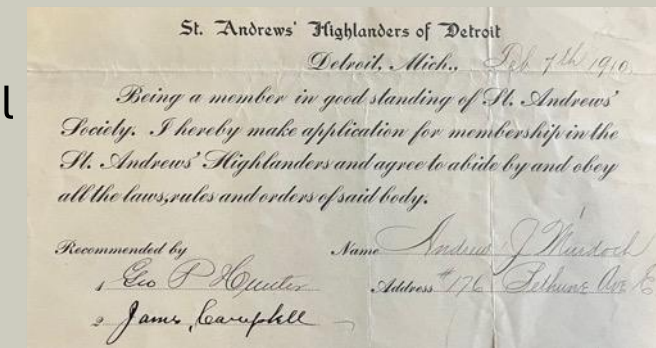 St. Andrews' Highlanders of Detroit
Detroit, Mich., Feb 7th 1910
Being a member in good standing of St. Andrews'
Society. I hereby make application for membership in the
St. Andrews' Highlanders and agree to abide by and obey
all the laws, rules and orders of said body.
Recommended by
Name Andrew J Murdoch
1 Geo P Hunter
Address #176 Bethune Ave E
2 James Campbell
l